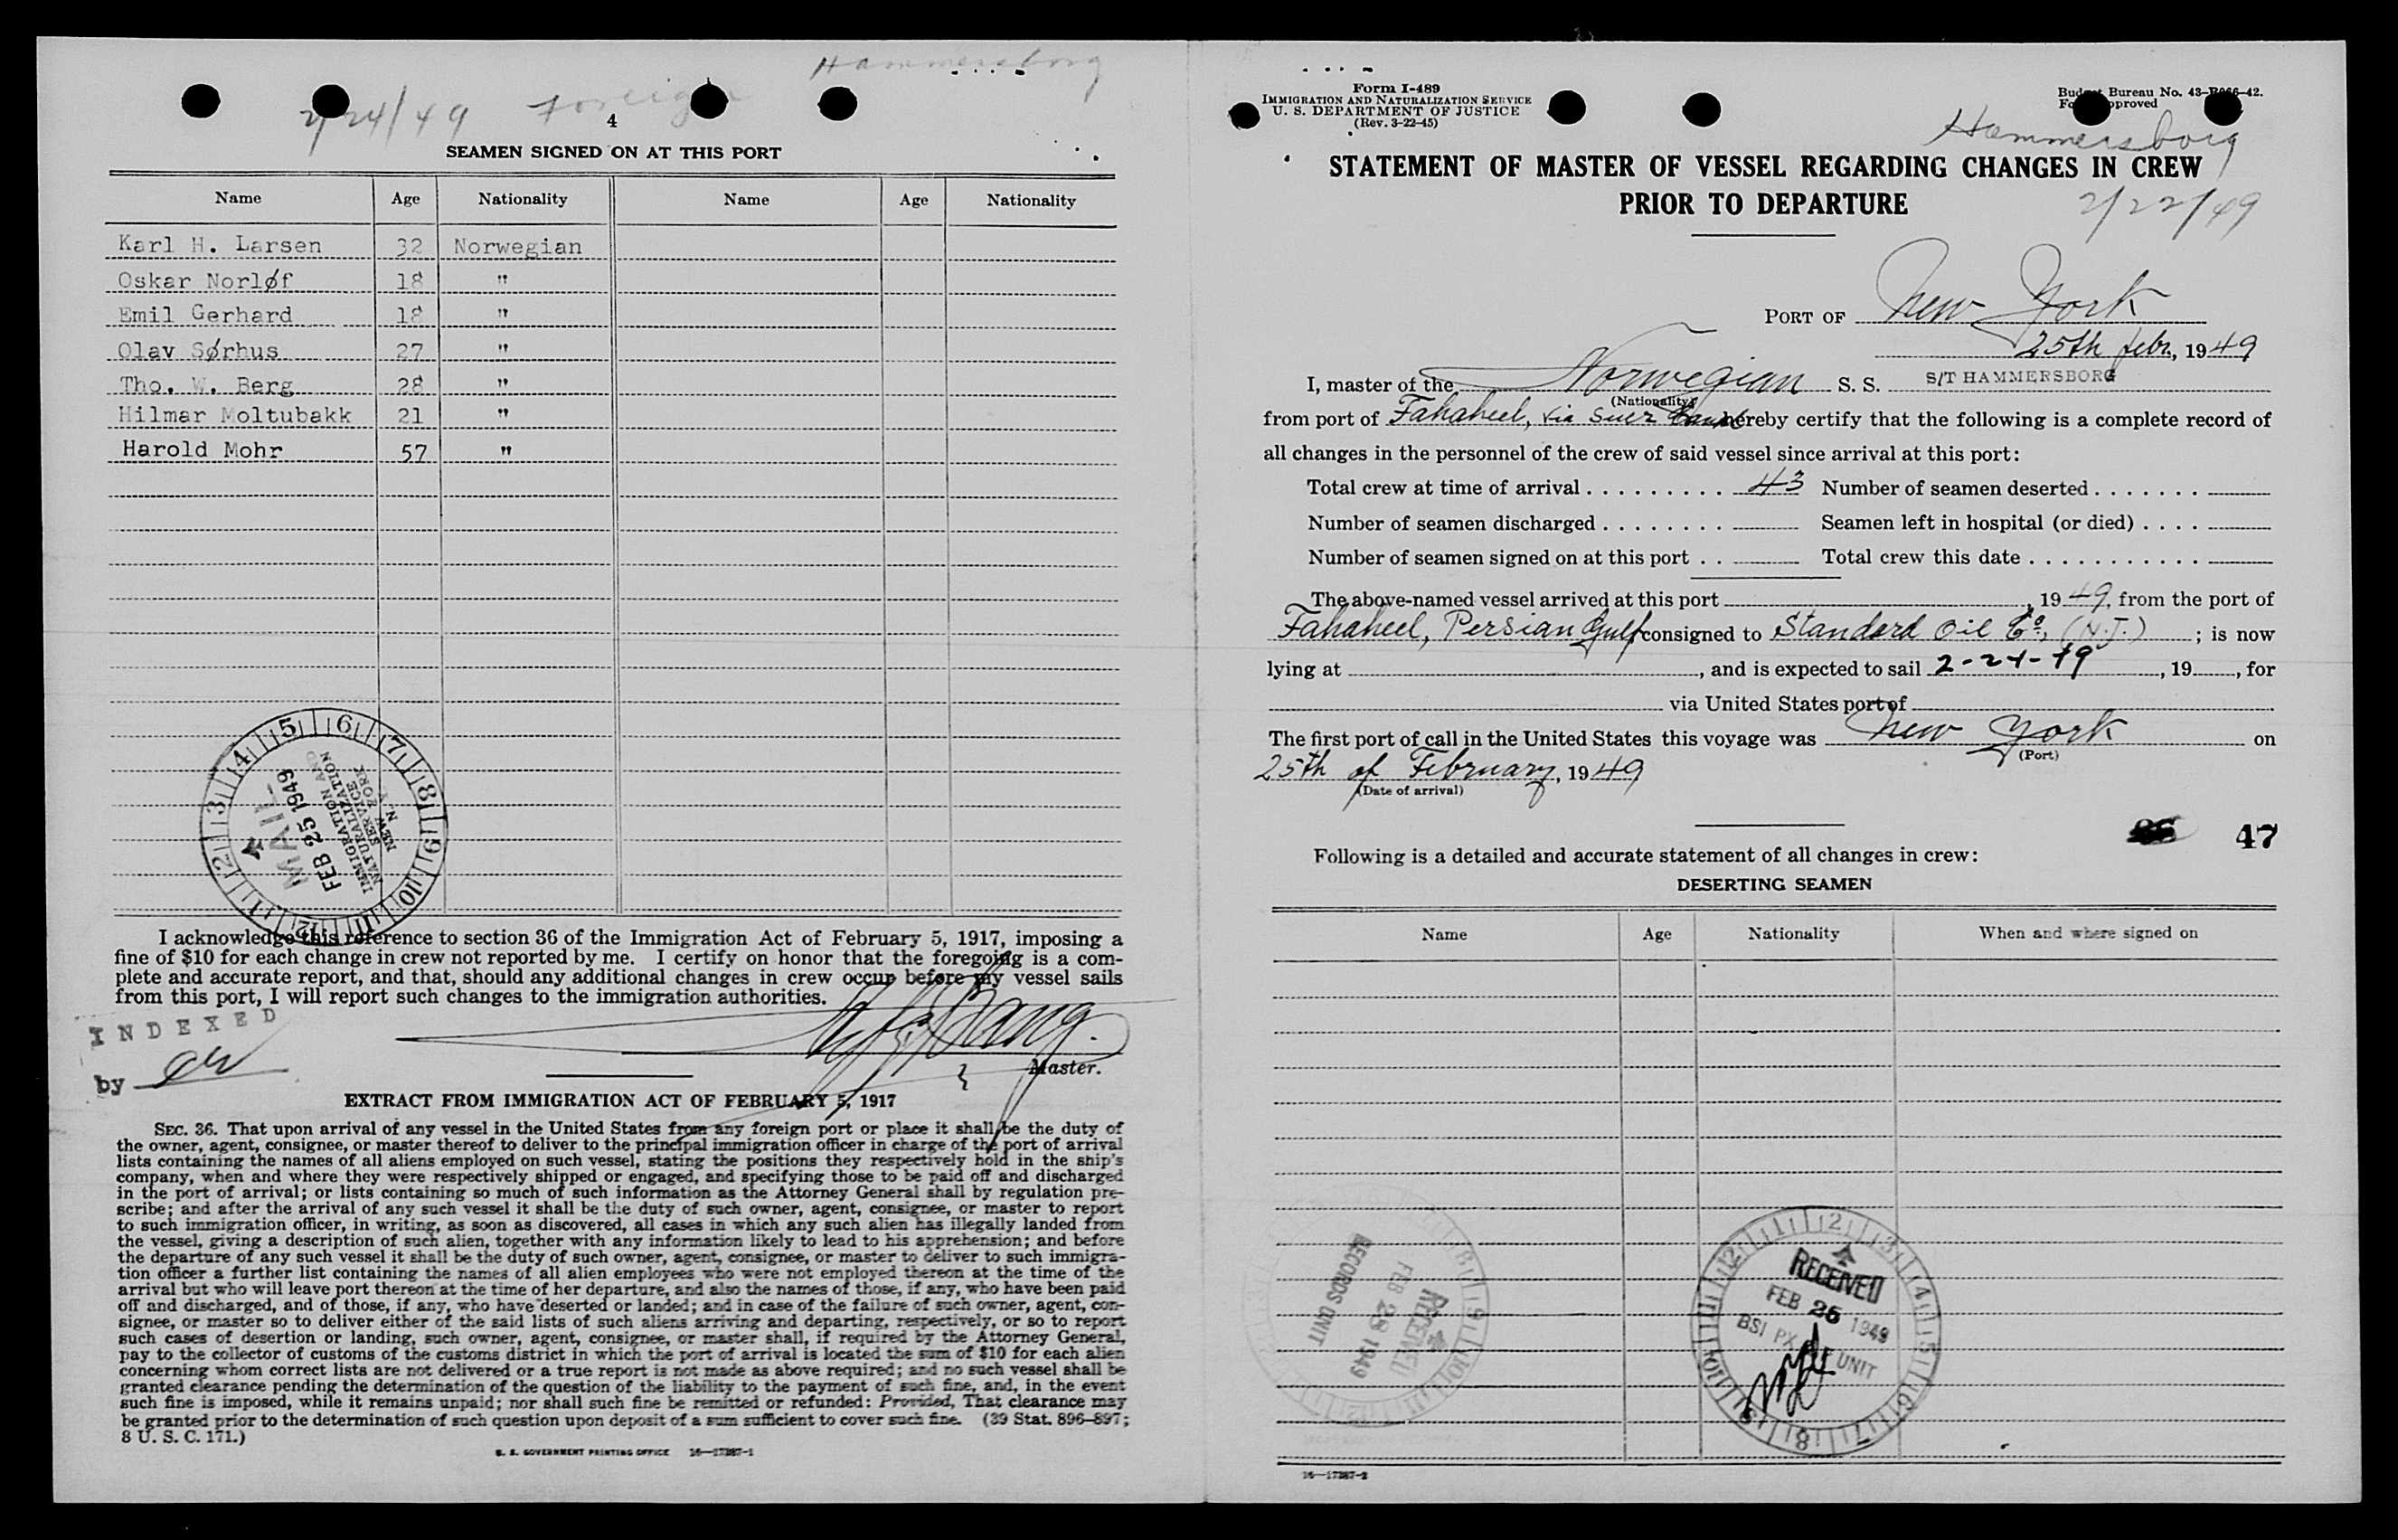 Hammersborg
2/24/49 Foreign
4
SEAMEN SIGNED ON AT THIS PORT
Name Age Nationality Name Age Nationality
Karl H. Larsen 32 Norwegian
Oskar Norløf 18 "
Emil Gerhard 18 "
Olav Sørhus 27 "
Tho. W. Berg 28 "
Hilmar Moltubakk 21 "
Harold Mohr 57 "
1 2 3 4 5 6 7 8 9 10 11 12
MAIL
FEB 25 1949
IMMIGRATION AND
NATURALIZATION
SERVICE
NEW YORK
N. Y.
I acknowledge this reference to section 36 of the Immigration Act of February 5, 1917, imposing a
fine of $10 for each change in crew not reported by me. I certify on honor that the foregoing is a com-
plete and accurate report, and that, should any additional changes in crew occur before my vessel sails
from this port, I will report such changes to the immigration authorities.
INDEXED
by
Master.
EXTRACT FROM IMMIGRATION ACT OF FEBRUARY 5, 1917
SEC. 36. That upon arrival of any vessel in the United States from any foreign port or place it shall be the duty of
the owner, agent, consignee, or master thereof to deliver to the principal immigration officer in charge of the port of arrival
lists containing the names of all aliens employed on such vessel, stating the positions they respectively hold in the ship's
company, when and where they were respectively shipped or engaged, and specifying those to be paid off and discharged
in the port of arrival; or lists containing so much of such information as the Attorney General shall by regulation pre-
scribe; and after the arrival of any such vessel it shall be the duty of such owner, agent, consignee, or master to report
to such immigration officer, in writing, as soon as discovered, all cases in which any such alien has illegally landed from
the vessel, giving a description of such alien, together with any information likely to lead to his apprehension; and before
the departure of any such vessel it shall be the duty of such owner, agent, consignee, or master to deliver to such immigra-
tion officer a further list containing the names of all alien employees who were not employed thereon at the time of the
arrival but who will leave port thereon at the time of her departure, and also the names of those, if any, who have been paid
off and discharged, and of those, if any, who have deserted or landed; and in case of the failure of such owner, agent, con-
signee, or master so to deliver either of the said lists of such aliens arriving and departing, respectively, or so to report
such cases of desertion or landing, such owner, agent, consignee, or master shall, if required by the Attorney General,
pay to the collector of customs of the customs district in which the port of arrival is located the sum of $10 for each alien
concerning whom correct lists are not delivered or a true report is not made as above required; and no such vessel shall be
granted clearance pending the determination of the question of the liability to the payment of such fine, and, in the event
such fine is imposed, while it remains unpaid; nor shall such fine be remitted or refunded: Provided, That clearance may
be granted prior to the determination of such question upon deposit of a sum sufficient to cover such fine. (39 Stat. 896–897;
8 U. S. C. 171.)
U. S. GOVERNMENT PRINTING OFFICE 16—17387-1
Form I-489
IMMIGRATION AND NATURALIZATION SERVICE
U. S. DEPARTMENT OF JUSTICE
(Rev. 3-22-45)
Bureau No. 43-
Hammersborg
STATEMENT OF MASTER OF VESSEL REGARDING CHANGES IN CREW
PRIOR TO DEPARTURE
2/22/49
PORT OF New York
25th febr., 1949
I, master of the Norwegian S. S. S/T HAMMERSBORG
(Nationality)
from port of Fahaheel, via Suez Canal hereby certify that the following is a complete record of
all changes in the personnel of the crew of said vessel since arrival at this port:
Total crew at time of arrival . . . . . . . . . 43 Number of seamen deserted . . . . . . .
Number of seamen discharged . . . . . . . . Seamen left in hospital (or died) . . . .
Number of seamen signed on at this port . . Total crew this date . . . . . . . . . . .
The above-named vessel arrived at this port , 1949, from the port of
Fahaheel, Persian Gulf consigned to Standard Oil Co., (N.J.) ; is now
lying at , and is expected to sail 2-24-49, 19 , for
via United States port of
The first port of call in the United States this voyage was New York on
(Port)
25th of February, 1949
(Date of arrival)
47
Following is a detailed and accurate statement of all changes in crew:
DESERTING SEAMEN
Name Age Nationality When and where signed on
RECEIVED
FEB 28 1949
RECORDS UNIT
1 2 3 4 5 6 7 8 9 10 11 12
RECEIVED
FEB 25 1949
BSI UNIT
16—17387-2